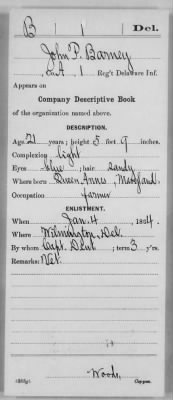 B 1 Del.
John P. Barney
Reg't Delaware Inf.
Appears on
Company Descriptive Book
of the organization named above.
DESCRIPTION.
Age 21 years; height 5 feet 9 inches.
Complexion light
Eyes blue; hair sandy
Where born Queen Anns, Maryland.
Occupation farmer
ENLISTMENT.
When Jan. 4, 1864.
Where Wilmington, Del.
By whom Capt. Dent; term 3 y'rs.
Remarks: Vet.
Woods,
Copyist.